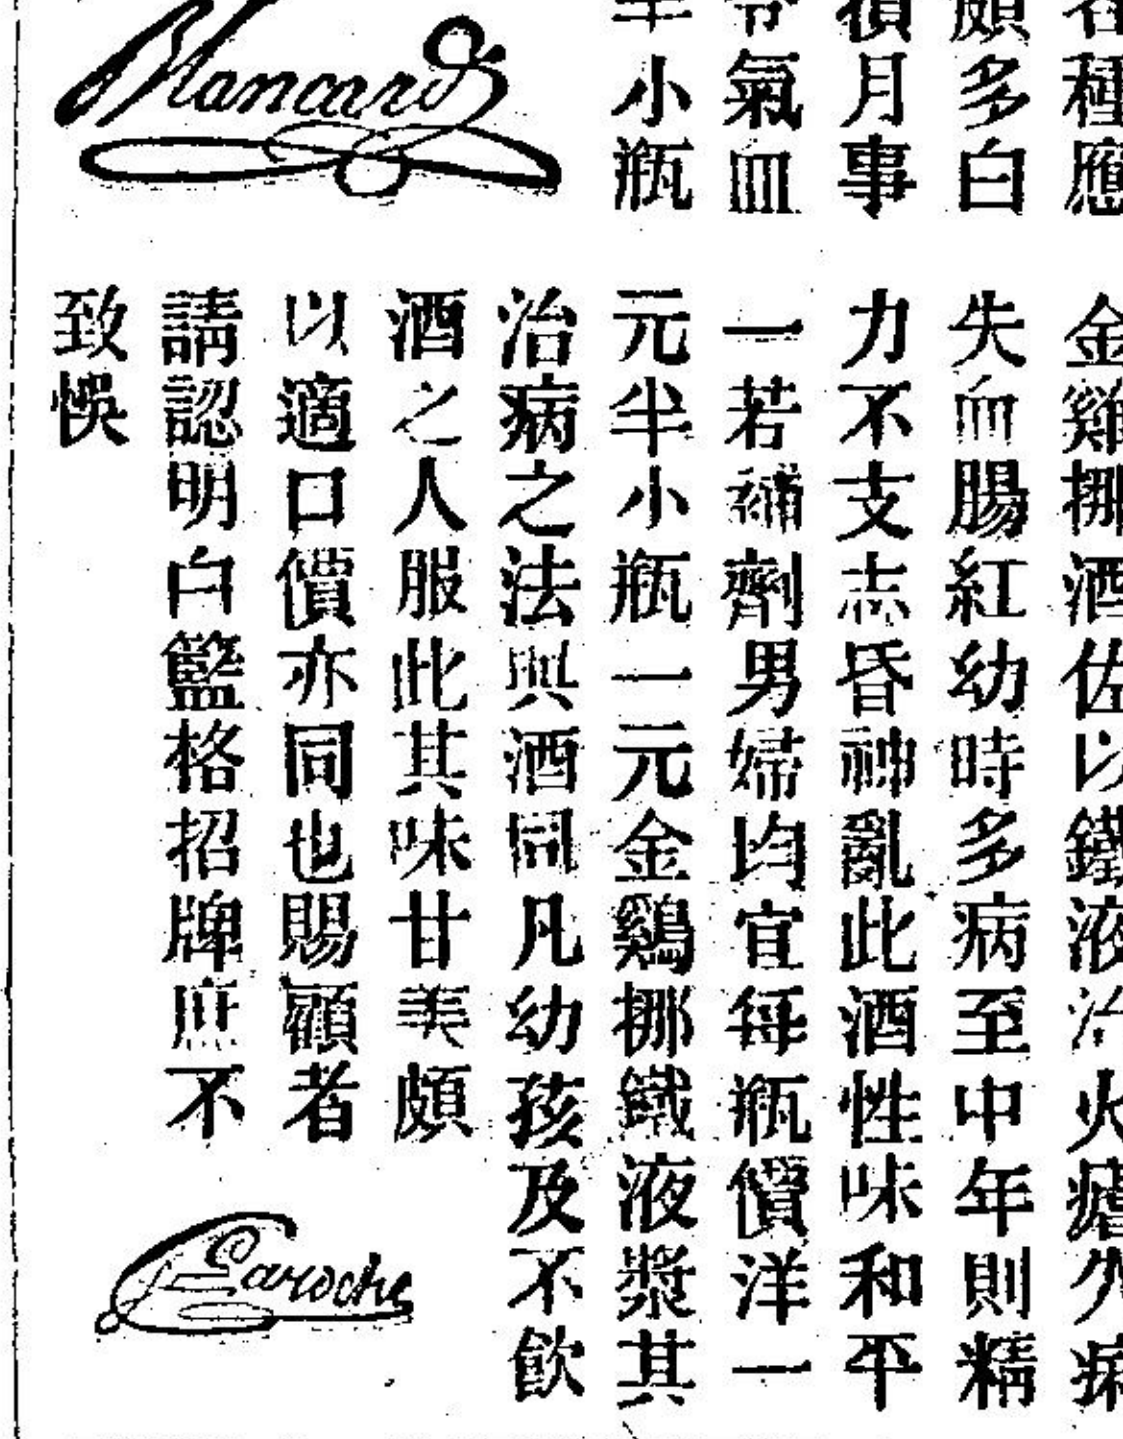 種應
頗多白
價月事
令氣血
半小瓶
Blancard
金雞挪酒佐以鐵液治火瘧久痢
失血腸紅幼時多病至中年則精
力不支志昏神亂此酒性味和平
一若補劑男婦均宜每瓶價洋一
元半小瓶一元金鷄挪鐵液漿其
治病之法與酒同凡幼孩及不飲
酒之人服此其味甘美頗
以適口價亦同也賜顧者
請認明白籃格招牌庶不
致悞
Laroche